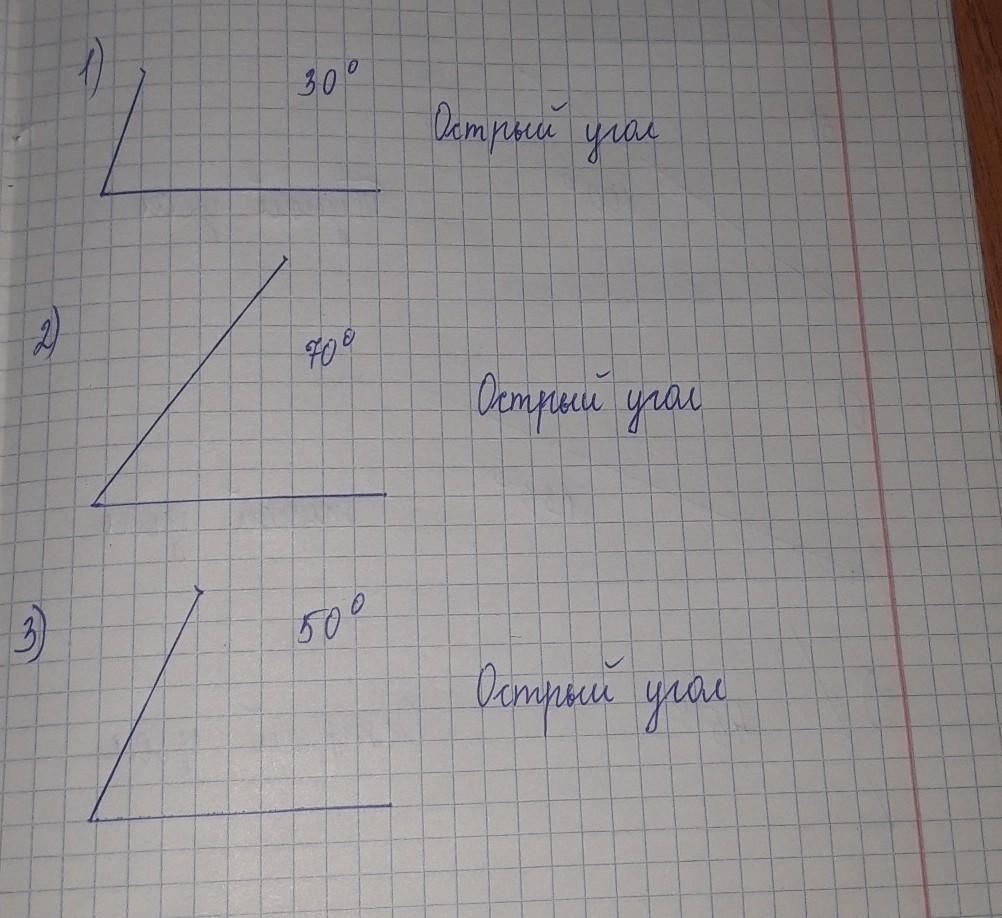 1)
30°
Острый угол
2)
70°
Острый угол
3)
50°
Острый угол